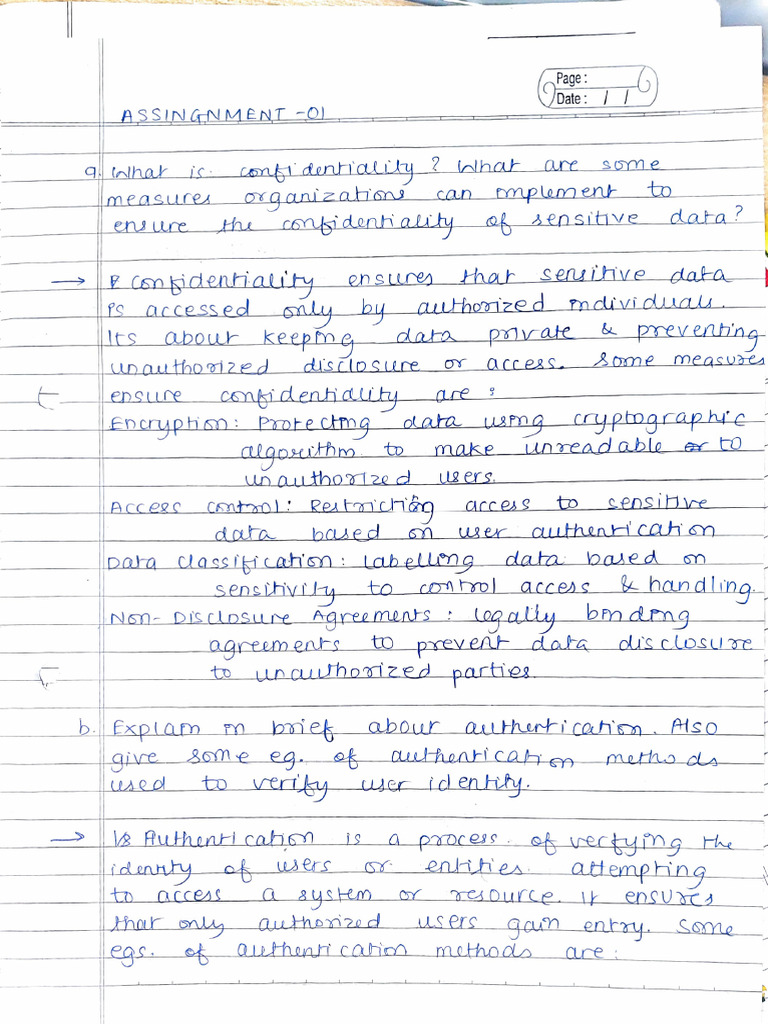 Page :
Date : / /
ASSINGNMENT -01
a. What is confidentiality ? What are some
measures organizations can implement to
ensure the confidentiality of sensitive data?
→ confidentiality ensures that sensitive data
is accessed only by authorized individuals.
Its about keeping data private & preventing
unauthorized disclosure or access. Some measures
ensure confidentiality are :
Encryption : Protecting data using cryptographic
algorithm to make unreadable to
unauthorized users.
Access control : Restricting access to sensitive
data based on user authentication
Data classification : Labelling data based on
sensitivity to control access & handling.
Non-Disclosure Agreements : legally binding
agreements to prevent data disclosure
to unauthorized parties.
b. Explain in brief about authentication. Also
give some eg. of authentication methods
used to verify user identity.
→ Authentication is a process of verfying the
identity of users or entities attempting
to access a system or resource. It ensures
that only authorized users gain entry. Some
egs. of authentication methods are :